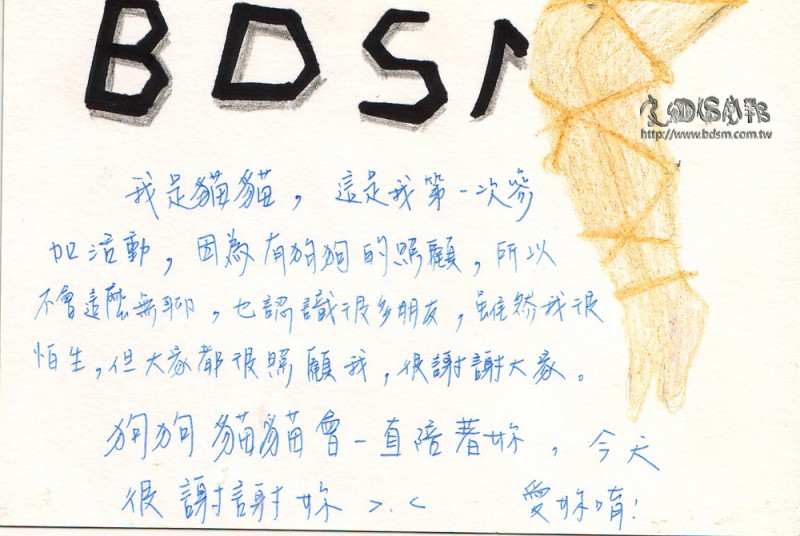 BDSM
http://www.bdsm.com.tw
我是貓貓，這是我第一次參
加活動，因為有狗狗的照顧，所以
不會這麼無聊，也認識很多朋友，雖然我很
怕生，但大家都很照顧我，很謝謝大家。
狗狗貓貓會一直陪著妳，今天
很謝謝妳 >.< 愛妳唷！